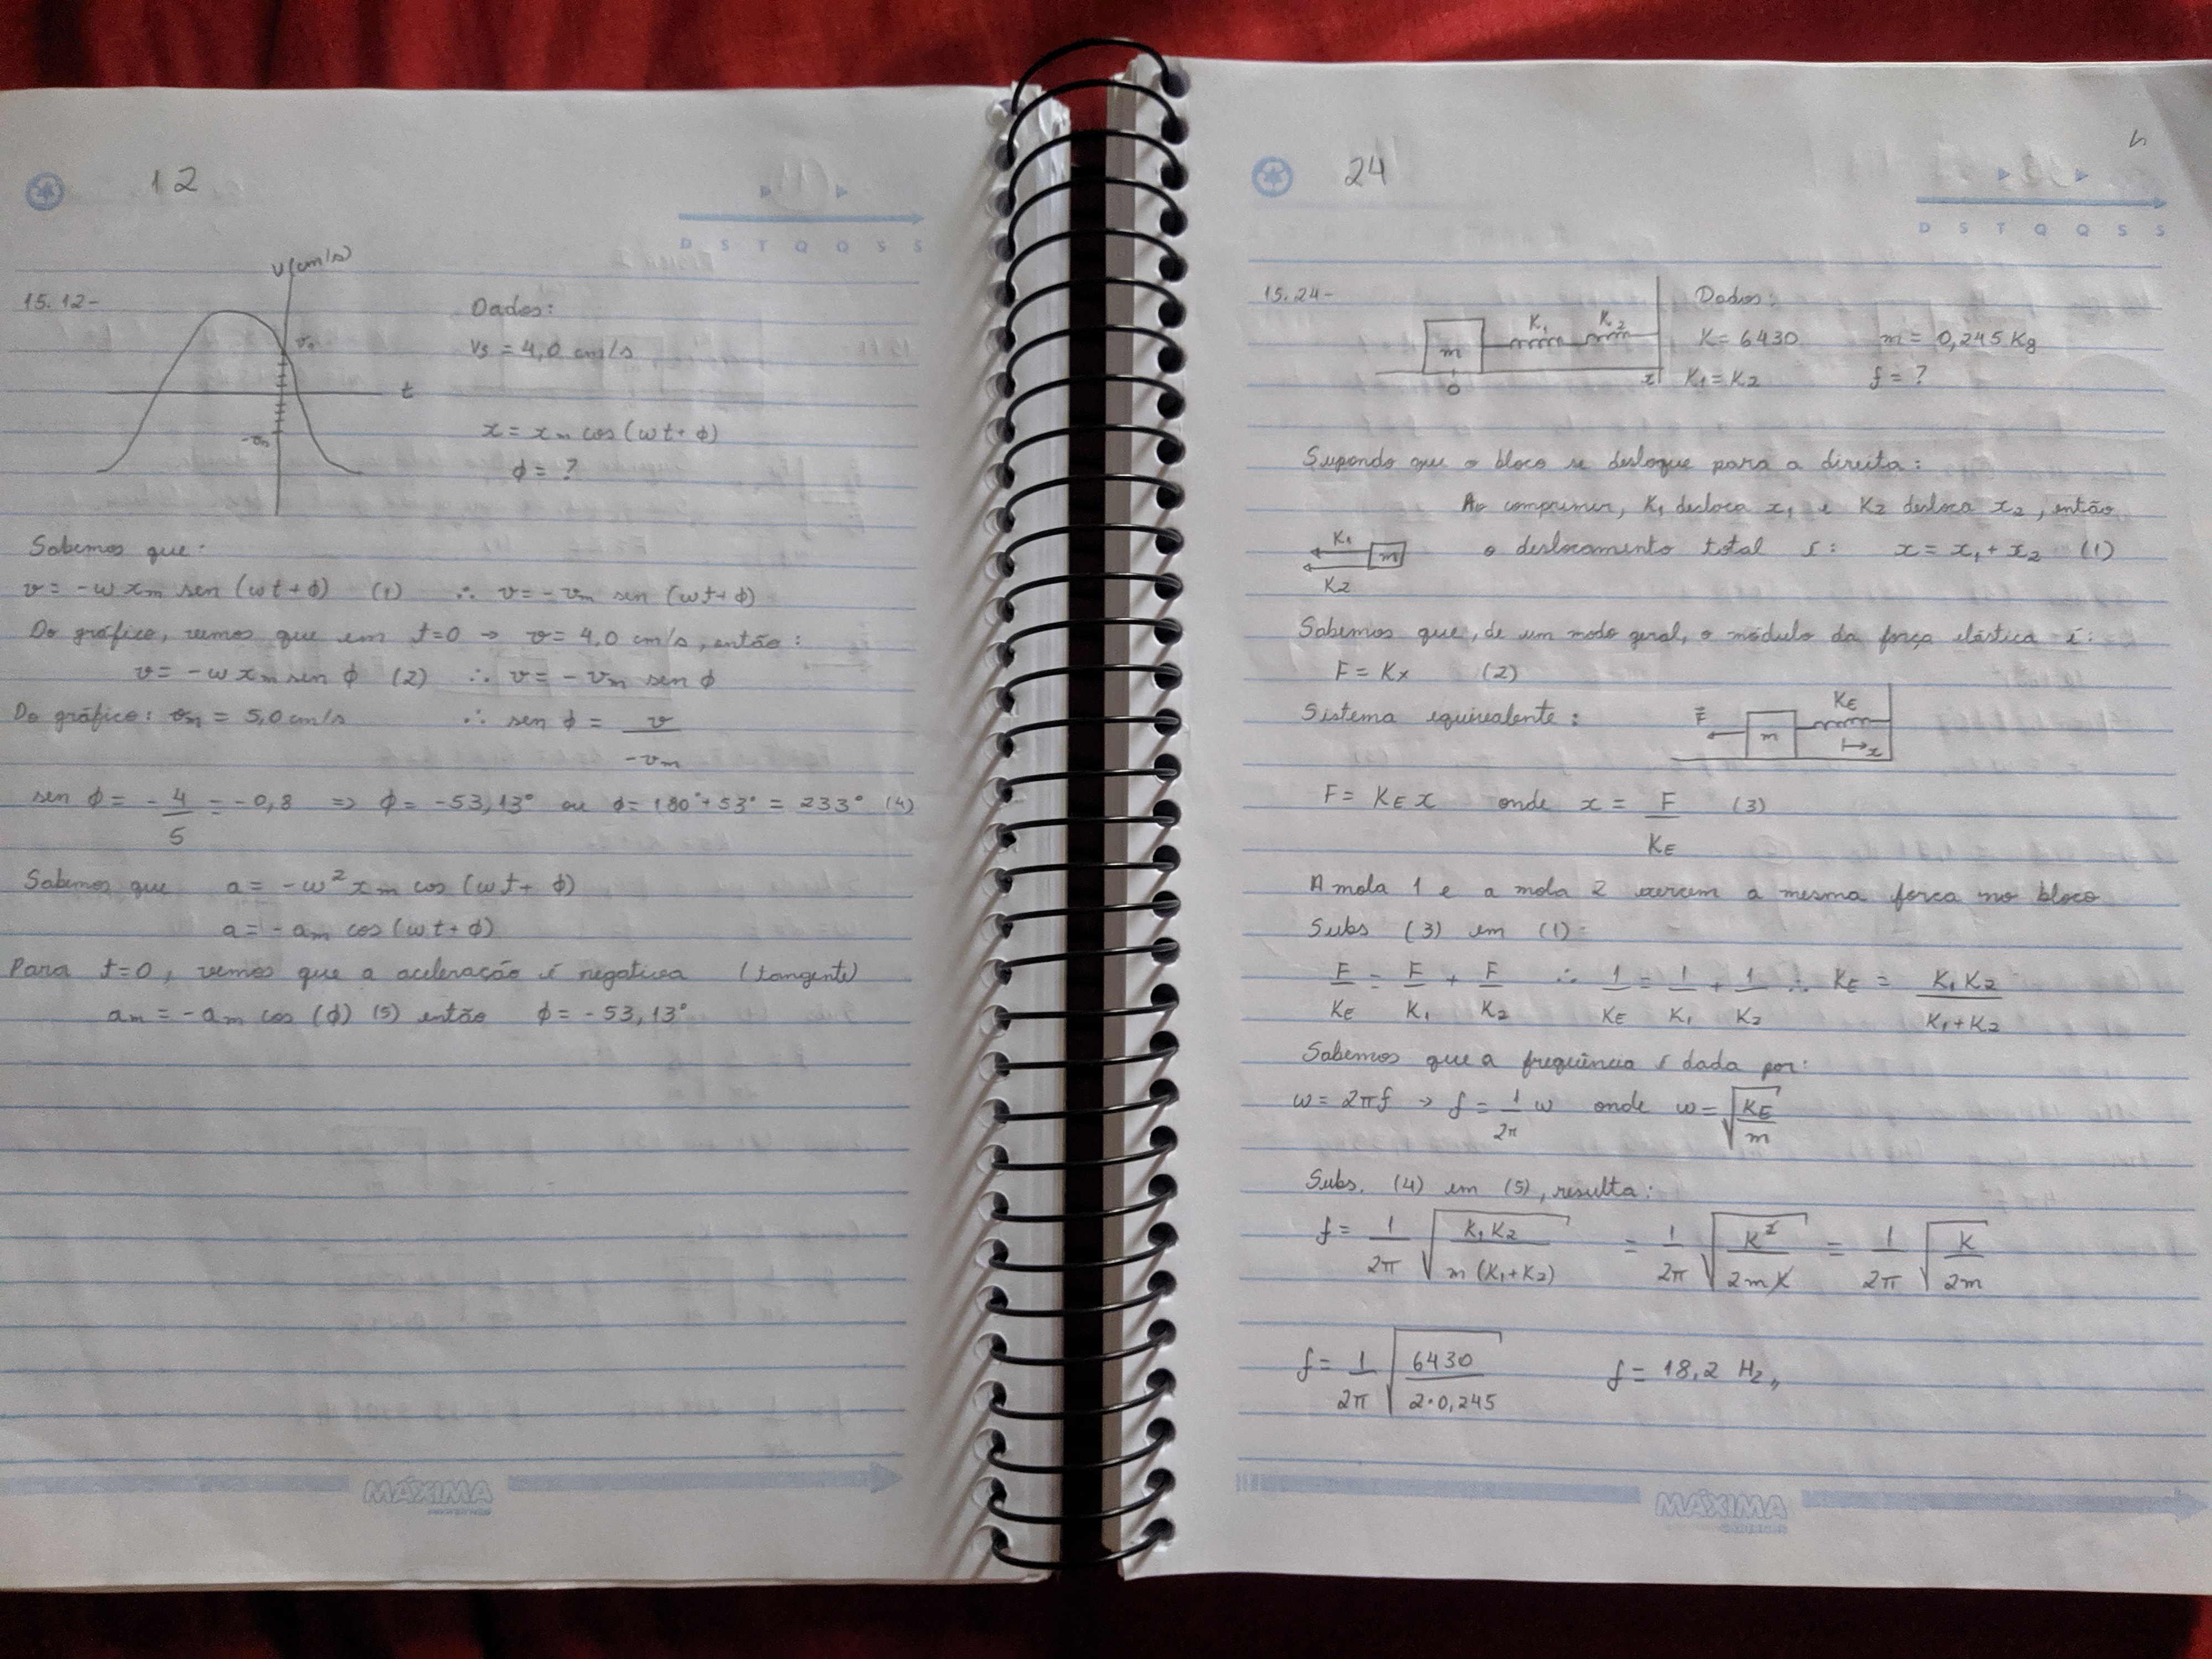 12
D S T Q Q S S
15.12-
v(cm/s)
t
-vm
Dados:
Vs = 4,0 cm/s
x = xm cos (ωt + ϕ)
ϕ = ?
Sabemos que:
v = -ωxm sen (ωt + ϕ) (1) ∴ v = -vm sen (ωt + ϕ)
Do gráfico, vemos que em t=0 → v = 4,0 cm/s, então:
v = -ωxm sen ϕ (2) ∴ v = -vm sen ϕ
Do gráfico: vm = 5,0 cm/s ∴ sen ϕ = v/-vm
sen ϕ = -4/5 = -0,8 => ϕ = -53,13° ou ϕ = 180°+53° = 233° (4)
Sabemos que a = -ω² xm cos (ωt + ϕ)
a = -am cos (ωt + ϕ)
Para t=0, vemos que a aceleração é negativa (tangente)
am = -am cos (ϕ) (5) então ϕ = -53,13°
MÁXIMA
24
4
D S T Q Q S S
15.24-
m K1 K2
0 x
Dados:
K = 6430 m = 0,245 Kg
K1 = K2 f = ?
Supondo que o bloco se desloque para a direita:
Ao comprimir, K1 desloca x1 e K2 desloca x2, então
K1 m
K2
o deslocamento total é: x = x1 + x2 (1)
Sabemos que, de um modo geral, o módulo da força elástica é:
F = Kx (2)
Sistema equivalente:
F m KE
x
F = KE x onde x = F/KE (3)
A mola 1 e a mola 2 exercem a mesma força no bloco
Subs (3) em (1) =
F/KE = F/K1 + F/K2 ∴ 1/KE = 1/K1 + 1/K2 ∴ KE = K1K2/K1+K2
Sabemos que a frequência é dada por:
ω = 2πf → f = 1/2π ω onde ω = √KE/m
Subs. (4) em (5), resulta:
f = 1/2π √K1K2/m(K1+K2) = 1/2π √K²/2mK = 1/2π √K/2m
f = 1/2π √6430/2·0,245 f = 18,2 Hz,
MÁXIMA